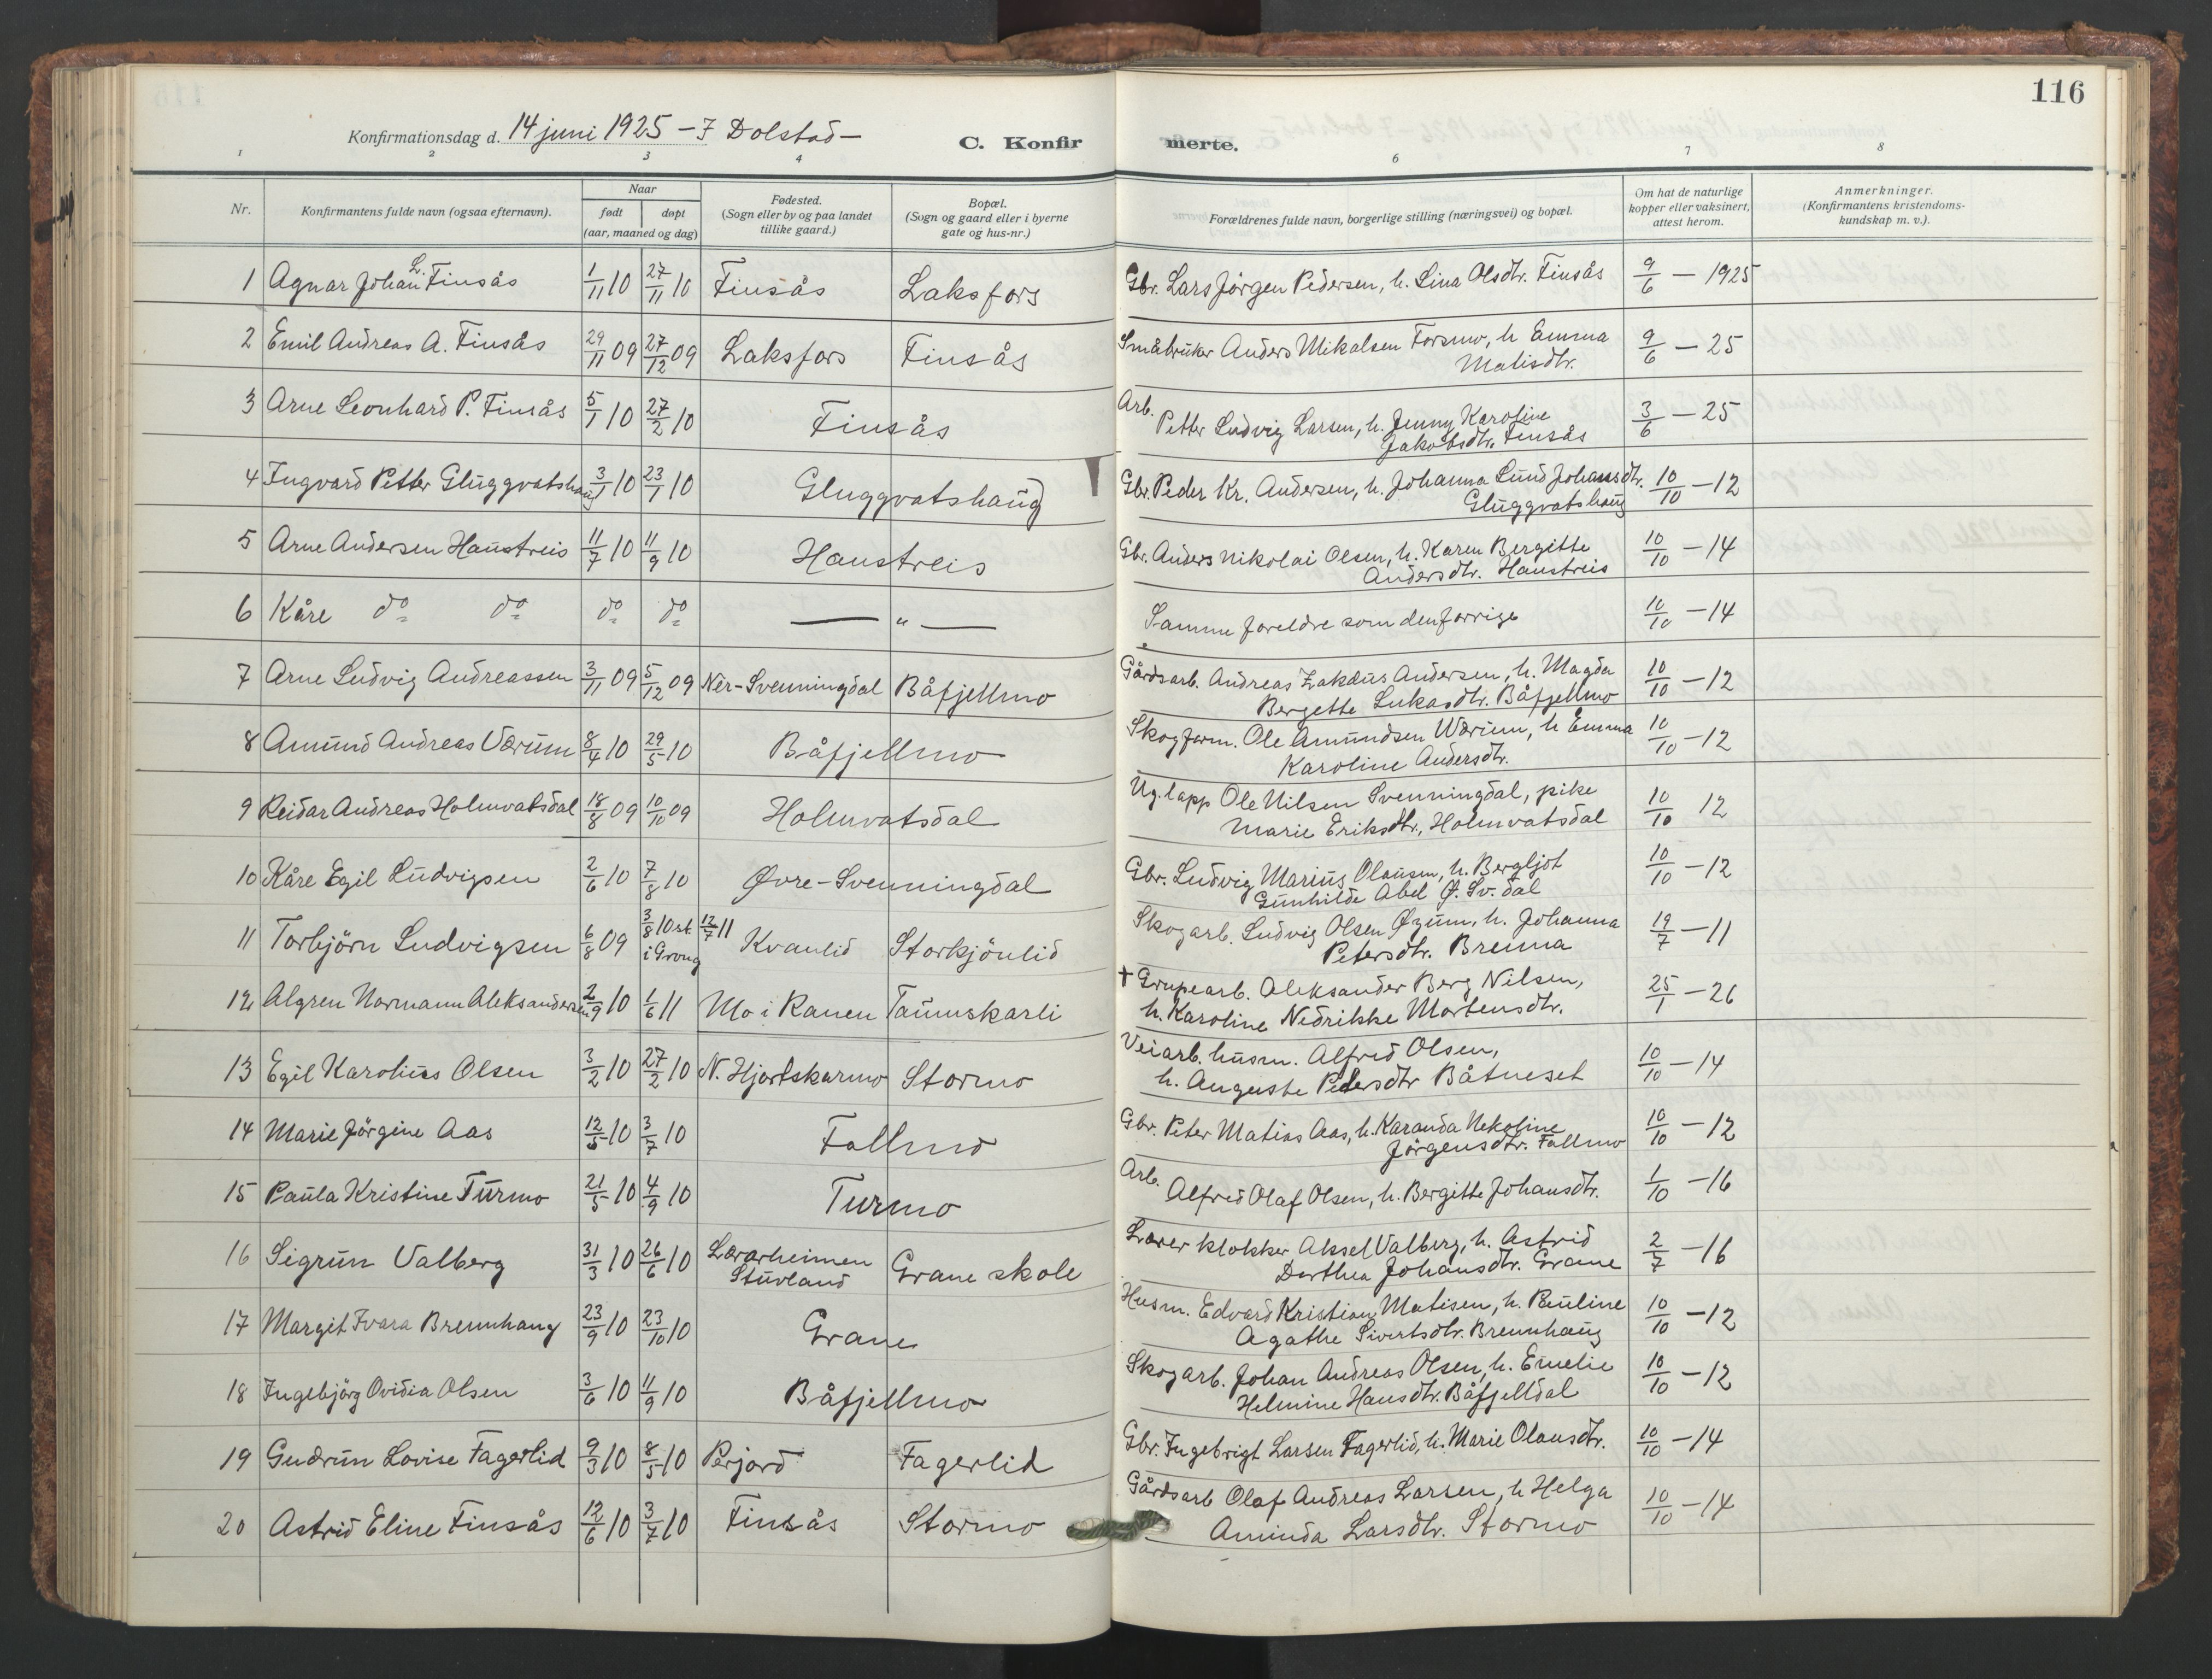 116
Konfirmationsdag d. 14 juni 1925 – I Dolstad –
C. Konfirmerte.
1 2 3 4 6 7 8
Nr.
Konfirmantens fulde navn (ogsaa efternavn).
Naar
født døpt
(aar, maaned og dag)
Fødested.
(Sogn eller by og paa landet
tillike gaard.)
Bopæl.
(Sogn og gaard eller i byerne
gate og hus-nr.)
Forældrenes fulde navn, borgerlige stilling (næringsvei) og bopæl.
Om hat de naturlige
kopper eller vaksinert,
attest herom.
Anmerkninger.
(Konfirmantens kristendoms-
kundskap m. v.).
1 Agnar Johan L. Finsås 1/11 10 27/11 10 Finsås Laksfors Gbr. Lars Jörgen Pedersen, h. Lina Olsdtr. Finsås 9/6 – 1925
2 Emil Andreas A. Finsås 29/11 09 27/12 09 Laksfors Finsås Småbruker Anders Mikalsen Forsmo, h Emma
Matisdtr. 9/6 – 25
3 Arne Leonhard P. Finsås 5/1 10 27/2 10 Finsås Arb.
Petter Ludvig Larsen, h. Jenny Karoline
Jakobsdtr. Finsås 3/6 – 25
4 Ingvard Petter Gluggvatshaug 3/1 10 23/1 10 Gluggvatshaug Gbr. Peder Kr. Andersen, h. Johanna Lund Johansdtr.
Gluggvatshaug 10/10 – 12
5 Arne Andersen Haustreis 11/7 10 11/9 10 Haustreis Gbr. Anders Nikolai Olsen, h. Karen Bergitte
Andersdtr. Haustreis 10/10 – 14
6 Kåre do do do do — " — Samme foreldre som den forrige 10/10 – 14
7 Arne Ludvig Andreassen 3/11 09 5/12 09 Ner-Svenningdal Båfjellmo Gårdsarb. Andreas Zakæus Andersen, h. Magda
Bergette Lukasdtr. Båfjellmo 10/10 – 12
8 Amund Andreas Værum 8/4 10 29/5 10 Båfjellmo Skogform. Ole Amundsen Wærum, h Emma
Karoline Andersdtr. 10/10 – 12
9 Reidar Andreas Holmvatsdal 18/8 09 10/10 09 Holmvatsdal Ug. lapp Ole Nilsen Svenningdal, pike
Marie Eriksdtr., Holmvatsdal 10/10 12
10 Kåre Egil Ludvigsen 2/6 10 7/8 10 Øvre-Svenningdal Gbr. Ludvig Marius Olausen, h. Bergljot
Gunhilde Abel Ø. Sv. dal 10/10 – 12
11 Torbjörn Ludvigsen 6/8 09 3/8 10 st. 12/7 11
i Grong Kvanlid Storkjönlid Skogarb. Ludvig Olsen Øyum, h. Johanna
Petersdtr. Brenna 19/7 – 11
12 Algren Normann Aleksandersen 2/9 10 1/6 11 Mo i Ranen Taumskarli + Grupearb. Aleksander Berg Nilsen,
h. Karoline Nedrikke Mortensdtr. 25/1 – 26
13 Egil Karolius Olsen 3/2 10 27/2 10 N. Hjortskarmo Stormo Veiarb. husm. Alfred Olsen,
h. Auguste Pedersdtr Båtneset 10/10 – 14
14 Marie Jörgine Aas 12/5 10 3/7 10 Fallmo Gbr. Peter Matias Aas, h. Karanda Nekoline
Jörgensdtr. Fallmo 10/10 – 12
15 Paula Kristine Turmo 21/5 10 4/9 10 Turmo Arb.
Alfred Olaf Olsen, h. Bergitte Johansdtr. 1/10 – 16
16 Sigrun Valberg 31/3 10 26/6 10 Lærarheimen
Stuvland Grane skole Lærer klokker Aksel Valberg, h. Astrid
Dorthea Johansdtr. Grane 2/7 – 16
17 Margit Ivara Brennhaug 23/9 10 23/10 10 Grane Husm. Edvard Kristian Matisen, h. Pauline
Agathe Sivertsdtr. Brennhaug 10/10 – 12
18 Ingebjörg Ovidia Olsen 3/6 10 11/9 10 Båfjellmo Skogarb. Johan Andreas Olsen, h. Emelie
Helmine Hansdtr. Båfjelldal 10/10 – 12
19 Gudrun Lovise Fagerlid 9/3 10 8/5 10 Perjord Fagerlid Gbr. Ingebrigt Larsen Fagerlid, h. Marie Olausdtr. 10/10 – 14
20 Astrid Eline Finsås 12/6 10 3/7 10 Finsås Stormo Gårdsarb Olaf Andreas Larsen, h Helga
Aminda Larsdtr. Stormo 10/10 – 14